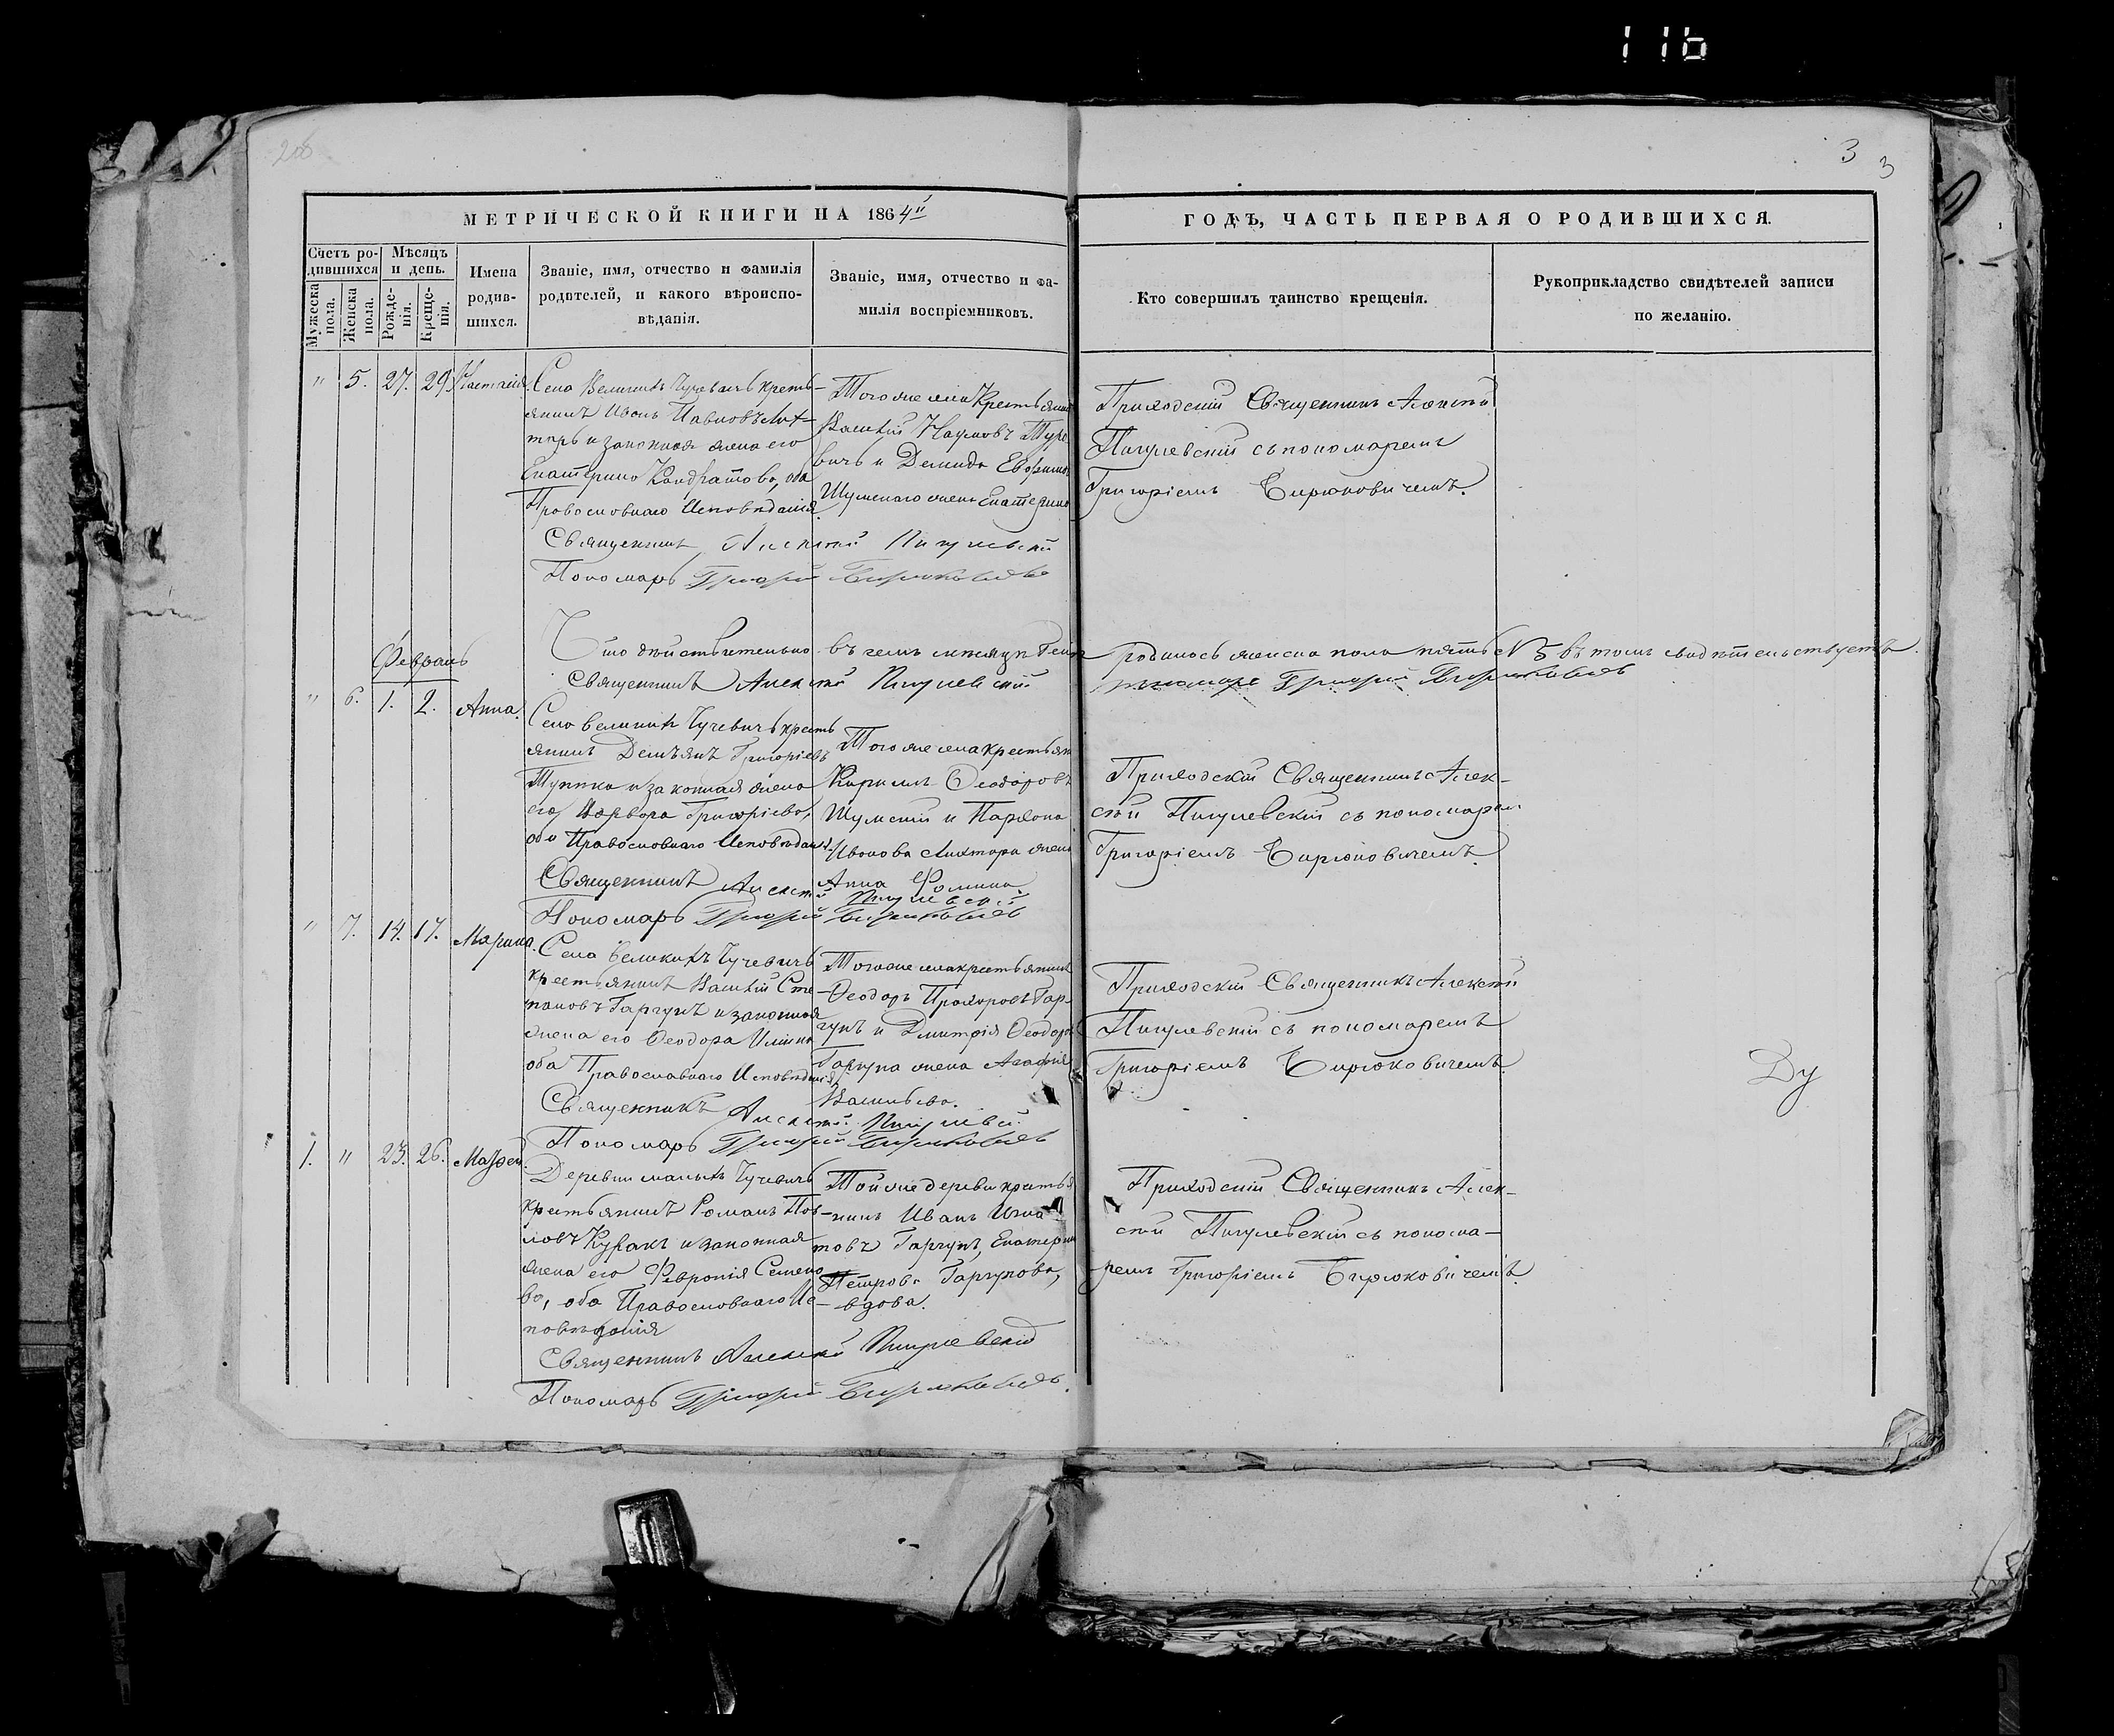 116
3
3
МЕТРИЧЕСКОЙ КНИГИ НА 1864й
ГОДЪ, ЧАСТЬ ПЕРВАЯ О РОДИВШИХСЯ.
Счетъ ро-
дившихся
Мужеска пола.
Женска пола.
Мѣсяцъ
и день.
Рожде-
нія.
Креще-
нія.
Имена
родив-
шихся.
Званіе, имя, отчество и фамилія
родителей, и какого вѣроиспо-
вѣданія.
Званіе, имя, отчество и фа-
милія воспріемниковъ.
Кто совершилъ таинство крещенія.
Рукоприкладство свидѣтелей записи
по желанію.
" 5. 27. 29.
Села Великихъ Чучевичъ кресть-
янинъ Иванъ Павловъ Лих-
таръ и законная жена его
Екатерина Кондратова, оба
Православнаго Исповѣданія.
Священникъ Алексѣй Пигулевскій
Пономарь Григорій Бирюковичъ
Тогоже села Крестьянинъ
Василій Наумовъ
и Демида
Шумскаго жена Екатерина
Приходскій Священникъ Алексѣй
Пигулевскій съ пономаремъ
Григоріемъ Бирюковичемъ.
Что дѣйствительно въ семъ мѣсяцѣ
родилось женска пола пять №5 въ томъ свидѣтельствуетъ.
Священникъ Алексѣй Пигулевскій
пономарь Григорій Бирюковичъ
Февраль
" 6. 1. 2. Анна.
Села Великихъ Чучевичъ кресть
янинъ Демьянъ Григоріевъ
Тупика и законная жена
его Варвара Григоріева,
оба Православнаго Исповѣданія.
Священникъ Алексѣй Пигулевскій
Пономарь Григорій Бирюковичъ
Тогоже села крестьян
Кириллъ Ѳеодоровъ
Шумскій и
Иванова Лихтара жена
Анна Фомина.
Приходскій Священникъ Алек-
сѣй Пигулевскій съ пономарем
Григоріемъ Бирюковичемъ.
" 7. 14. 17. Марина.
Села Великихъ Чучевичъ
крестьянинъ Василій Сте-
пановъ Гаргунъ и законная
жена его Ѳеодора Ильина
оба Православнаго Исповѣданія,
Священникъ Алексѣй Пигулевскій
Пономарь Григорій Бирюковичъ
Тогоже села крестьянинъ
Ѳеодоръ Прохоровъ Гар-
гунъ и Дмитрія Ѳеодоров
Гаргуна жена Агафія
Васильева.
Приходскій Священникъ Алексѣй
Пигулевскій съ пономаремъ
Григоріемъ Бирюковичемъ.
1. " 23. 26. Матѳей.
Деревни малыхъ Чучевичъ
крестьянинъ Романъ Пав-
ловъ и законная
жена его Февронія Семено
ва, оба Православнаго Ис-
повѣданія
Священникъ Алексѣй Пигулевскій
Пономарь Григорій Бирюковичъ.
Той же деревни крестья
нинъ Иванъ Игна
товъ Гаргунъ, Екатерина
Петрова Гаргунова,
вдова.
Приходскій Священникъ Алек-
сѣй Пигулевскій съ понома-
ремъ Григоріемъ Бирюковичемъ.